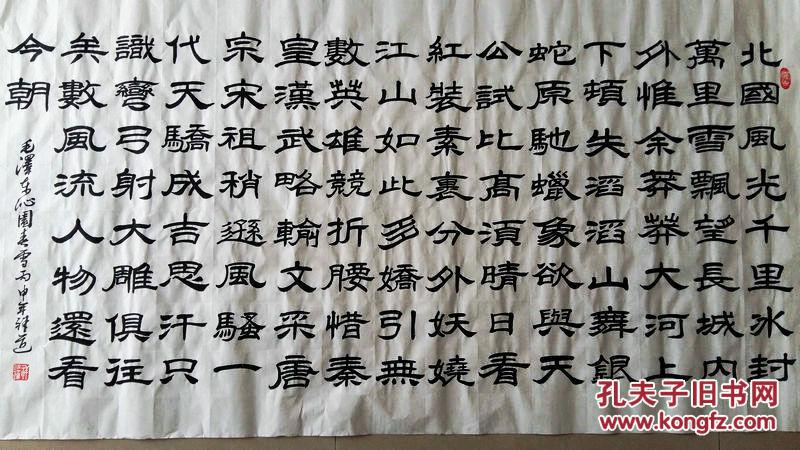 北國風光千里冰封
萬里雪飄望長城内
外惟余莽莽大河上
下頓失滔滔山舞銀
蛇原馳蠟象欲與天
公試比高須晴日看
紅裝素裹分外妖嬈
江山如此多嬌引無
數英雄競折腰惜秦
皇漢武略輸文采唐
宗宋祖稍遜風騷一
代天驕成吉思汗只
識彎弓射大雕俱往
矣數風流人物還看
今朝
毛澤东沁園春雪丙申年
孔夫子旧书网
www.kongfz.com